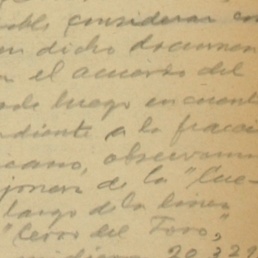 considerar con
dicho documen
el acuerdo del
luego en cuant
diente a la fracci
cano, observam
jonera de la "Cue
largo de la linea
"Cerro del Toro,"
20 329